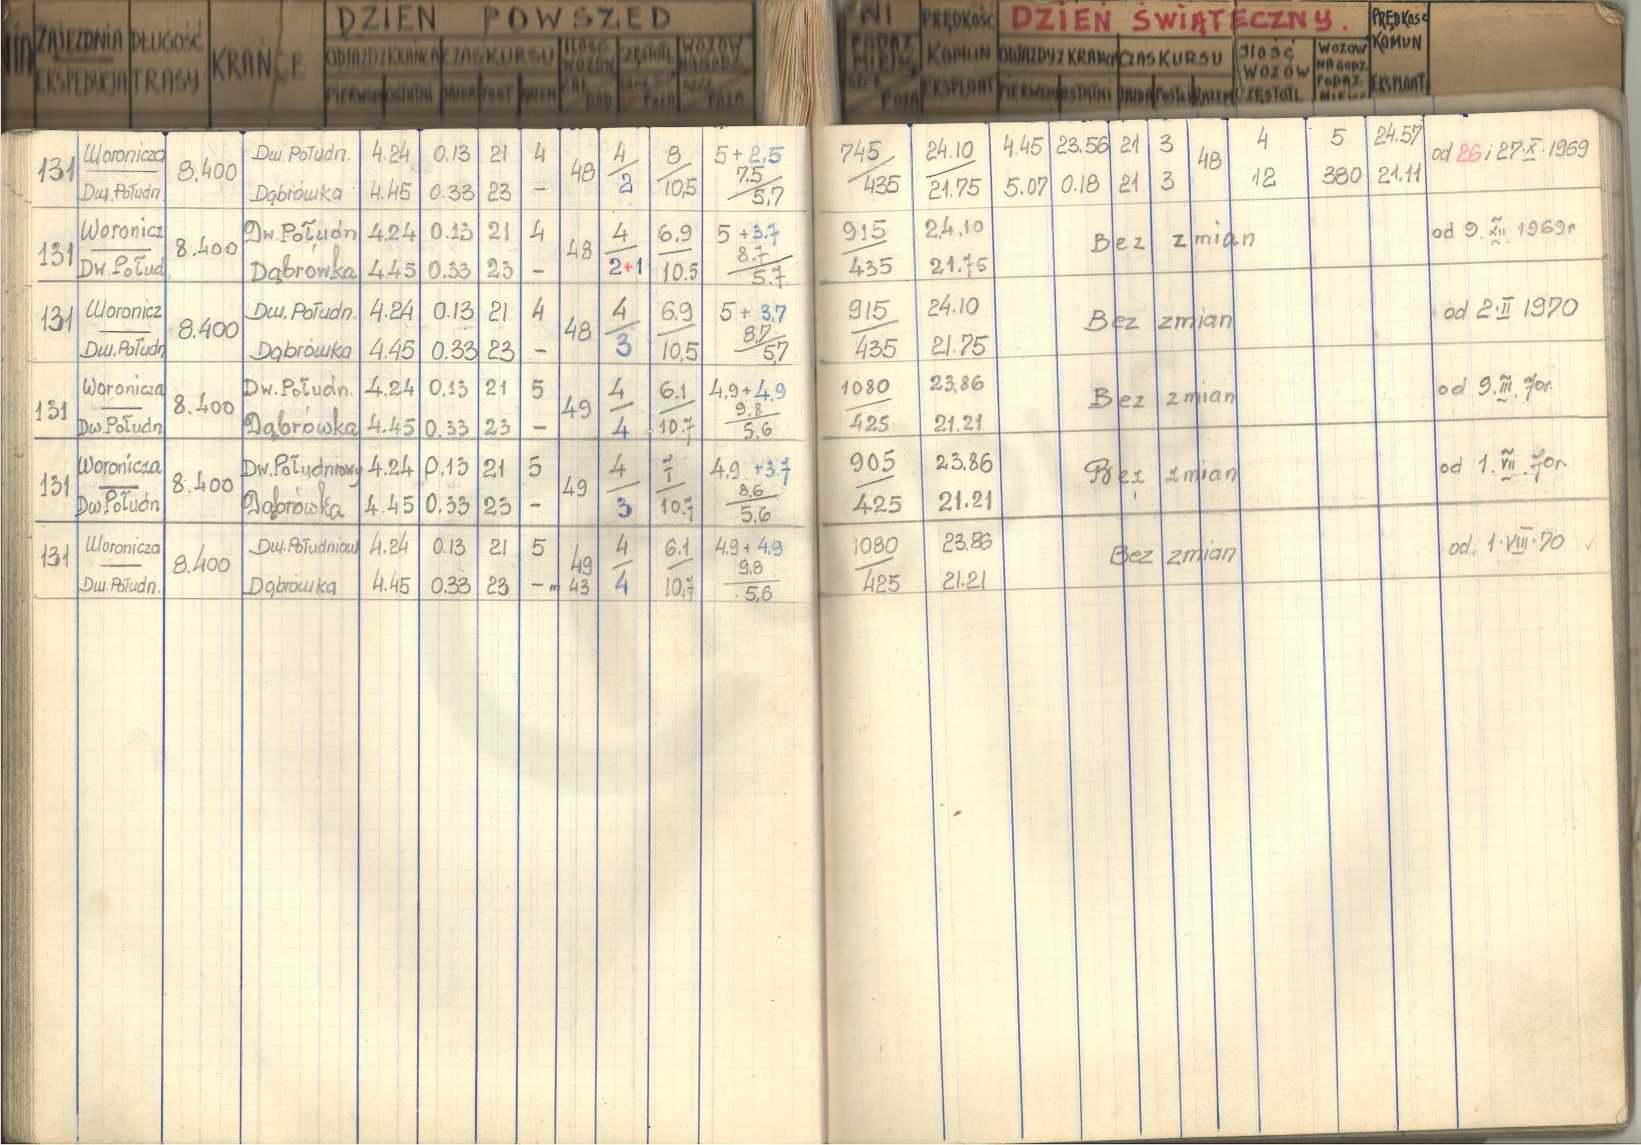 DZIEŃ POWSZED
ZAJEZDNIA DŁUGOŚĆ KRAŃCE ODJAZD Z KRAŃCA CZAS KURSU ILOŚĆ WOZÓW CZĘSTOTL WOZÓW NA GODZ
EKSPEDYCJA TRASY PIERWSZ OSTATNI JAZDA POST RAZEM
NI PRĘDKOŚĆ DZIEŃ ŚWIĄTECZNY. PRĘDKOŚĆ
KOMUN ODJAZDY Z KRAŃCA CZAS KURSU ILOŚĆ WOZÓW WOZÓW NA GODZ KOMUN
EKSPLOAT PIERWSZ OSTATNI JAZDA POST RAZEM CZĘSTOTL EKSPLOAT
131 Woronicza 8.400 Dw. Połudn. 4.24 0.13 21 4 48 4 8 5+2,5 745 24.10 4.45 23.56 21 3 48 4 5 24.57 od 26 i 27.X.1969
7,5
Dw. Połudn. Dąbrówka 4.45 0.33 23 – 2 10,5 5,7 435 21.75 5.07 0.18 21 3 12 380 21.11
131 Woronicz 8.400 Dw. Połudn 4.24 0.13 21 4 48 4 6.9 5+3.7 915 24.10 Bez zmian od 9.XII 1969r
8.7
Dw. Połud. Dąbrówka 4.45 0.33 23 – 2+1 10.5 5.7 435 21.75
131 Woronicz 8.400 Dw. Połudn. 4.24 0.13 21 4 48 4 6,9 5+3,7 915 24.10 Bez zmian od 2.II 1970
8,7
Dw. Połudn Dąbrówka 4.45 0.33 23 – 3 10,5 5,7 435 21.75
131 Woronicza 8.400 Dw. Połudn. 4.24 0,13 21 5 49 4 6.1 4.9+4.9 1080 23,86 Bez zmian od 9.III.70r.
9.8
Dw. Połudn Dąbrówka 4.45 0.33 23 – 4 10.7 5.6 425 21.21
131 Woronicza 8.400 Dw. Południowy 4.24 0,13 21 5 49 4 7 4,9 +3.7 905 23.86 Bez zmian od 1.VII.70r.
8,6
Dw Połudn Dąbrówka 4.45 0,33 23 – 3 10.7 5.6 425 21.21
131 Woronicza 8.400 Dw. Południow 4.24 0.13 21 5 49 4 6.1 4.9+4.9 1080 23.86 Bez zmian od. 1.VIII.70
9.8
Dw. Połudn. Dąbrówka 4.45 0.33 23 – 43 4 10,7 5,6 425 21.21